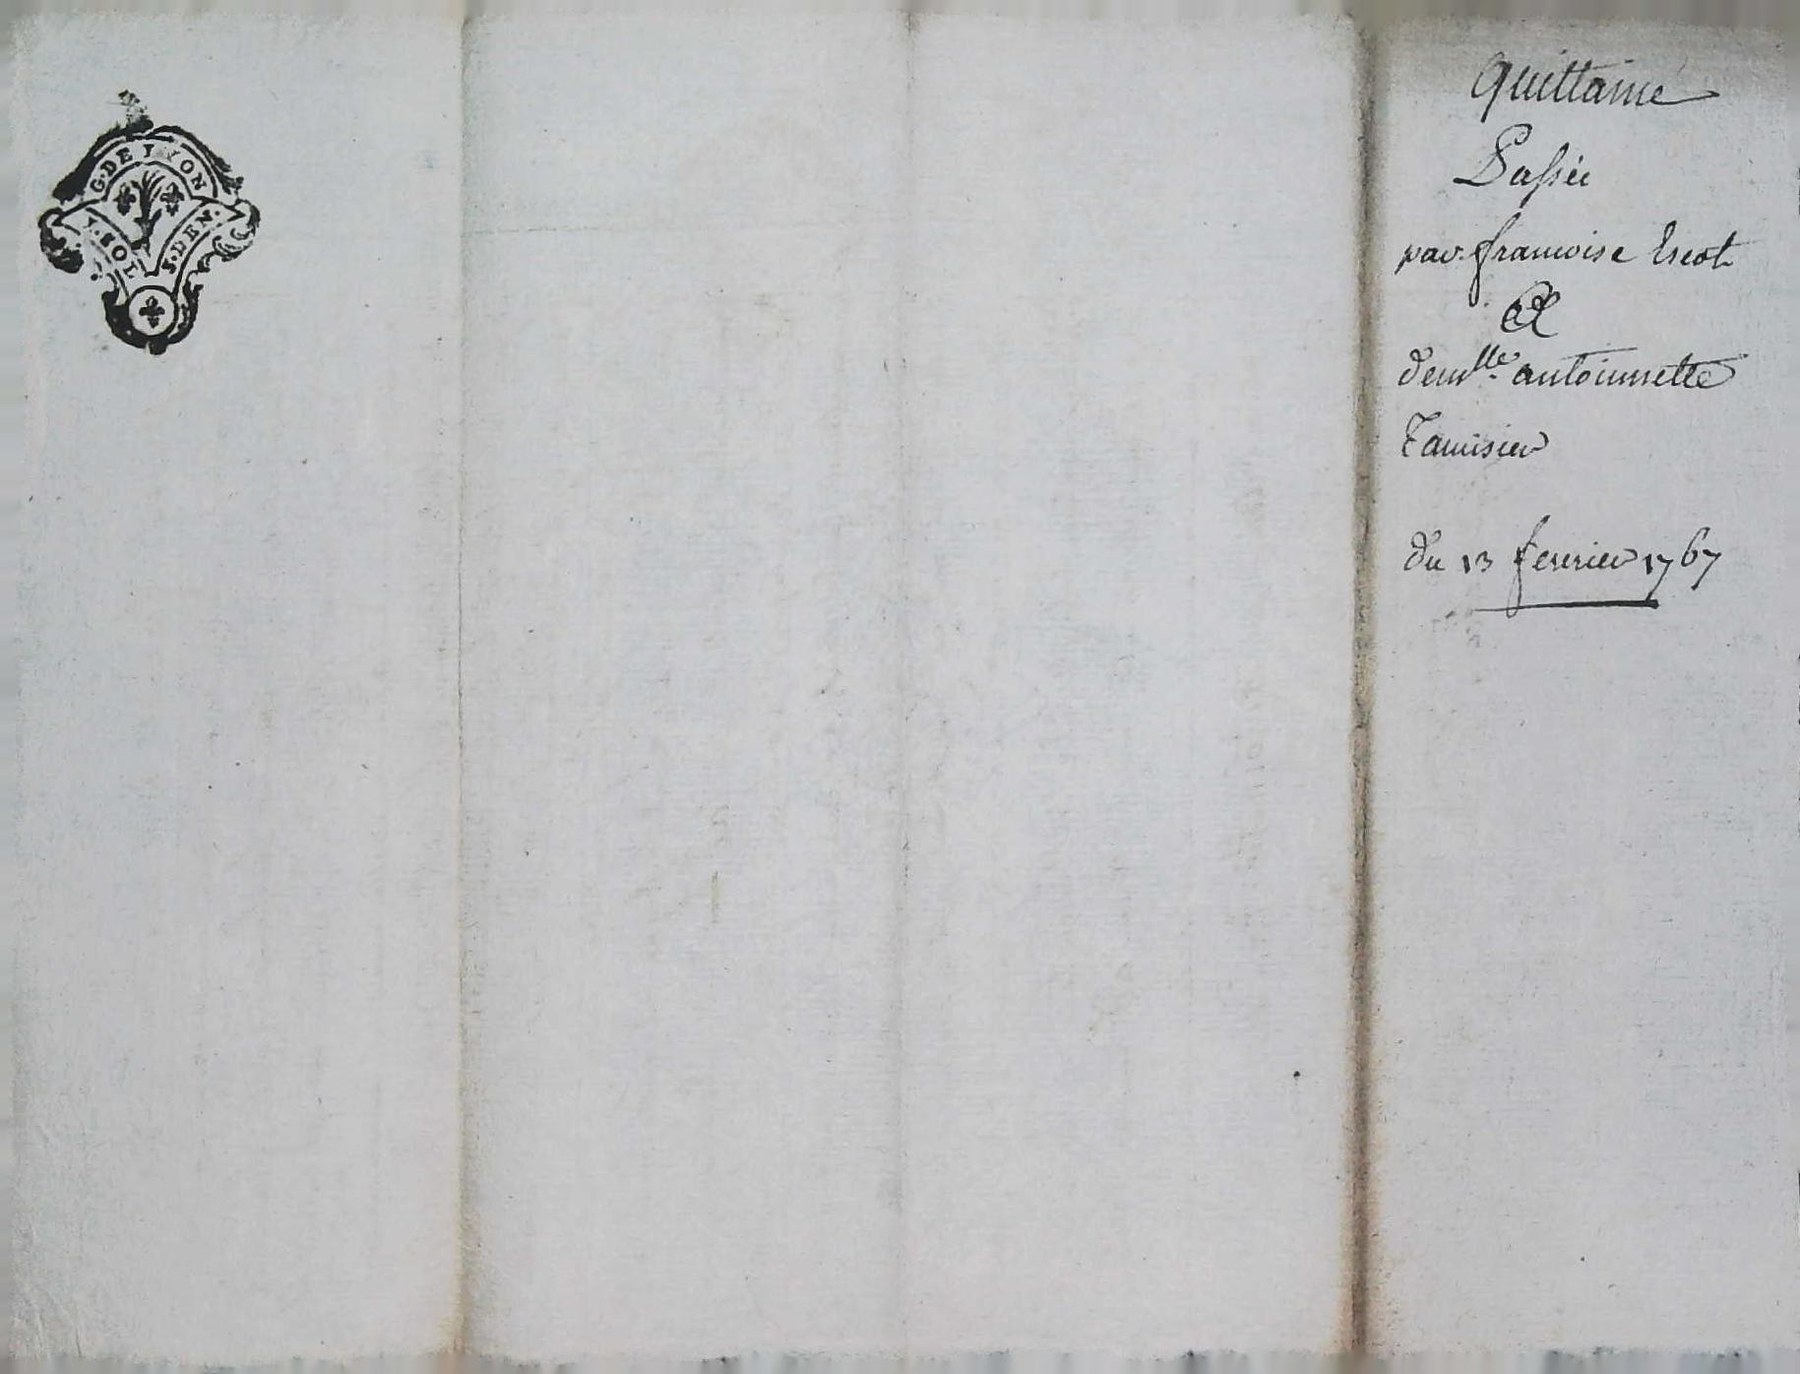 G. DE LYON
1. SOL
5. DEN.
quittance
Passée
par françoise
&
demlle antoinnette
Tamisier
du 13 fevrier 1767